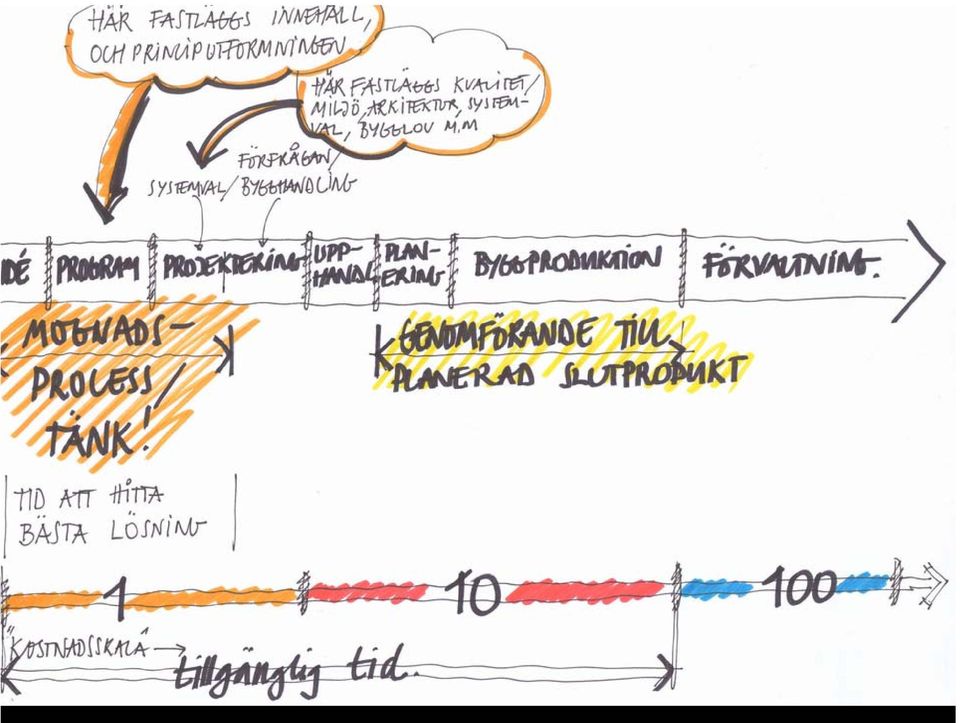 HÄR FASTLÄGGS INNEHÅLL,
OCH PRINCIPUTFORMNINGEN
HÄR FASTLÄGGS KVALITET/
MILJÖ, ARKITEKTUR, SYSTEM-
VAL, BYGGLOV M.M
FÖRFRÅGAN/
SYSTEMVAL/BYGGHANDLING
IDÉ
PROGRAM
PROJEKTERING
UPP-
HANDL
PLAN-
ERING
BYGGPRODUKTION
FÖRVALTNING.
MOGNADS-
PROCESS/
TÄNK!
GENOMFÖRANDE TILL
PLANERAD SLUTPRODUKT
TID ATT HITTA
BÄSTA LÖSNING
1
10
100
"KOSTNADSSKALA"
tillgänglig tid.